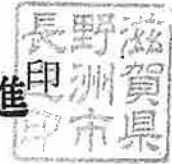 滋賀県
野洲市
長印
進印